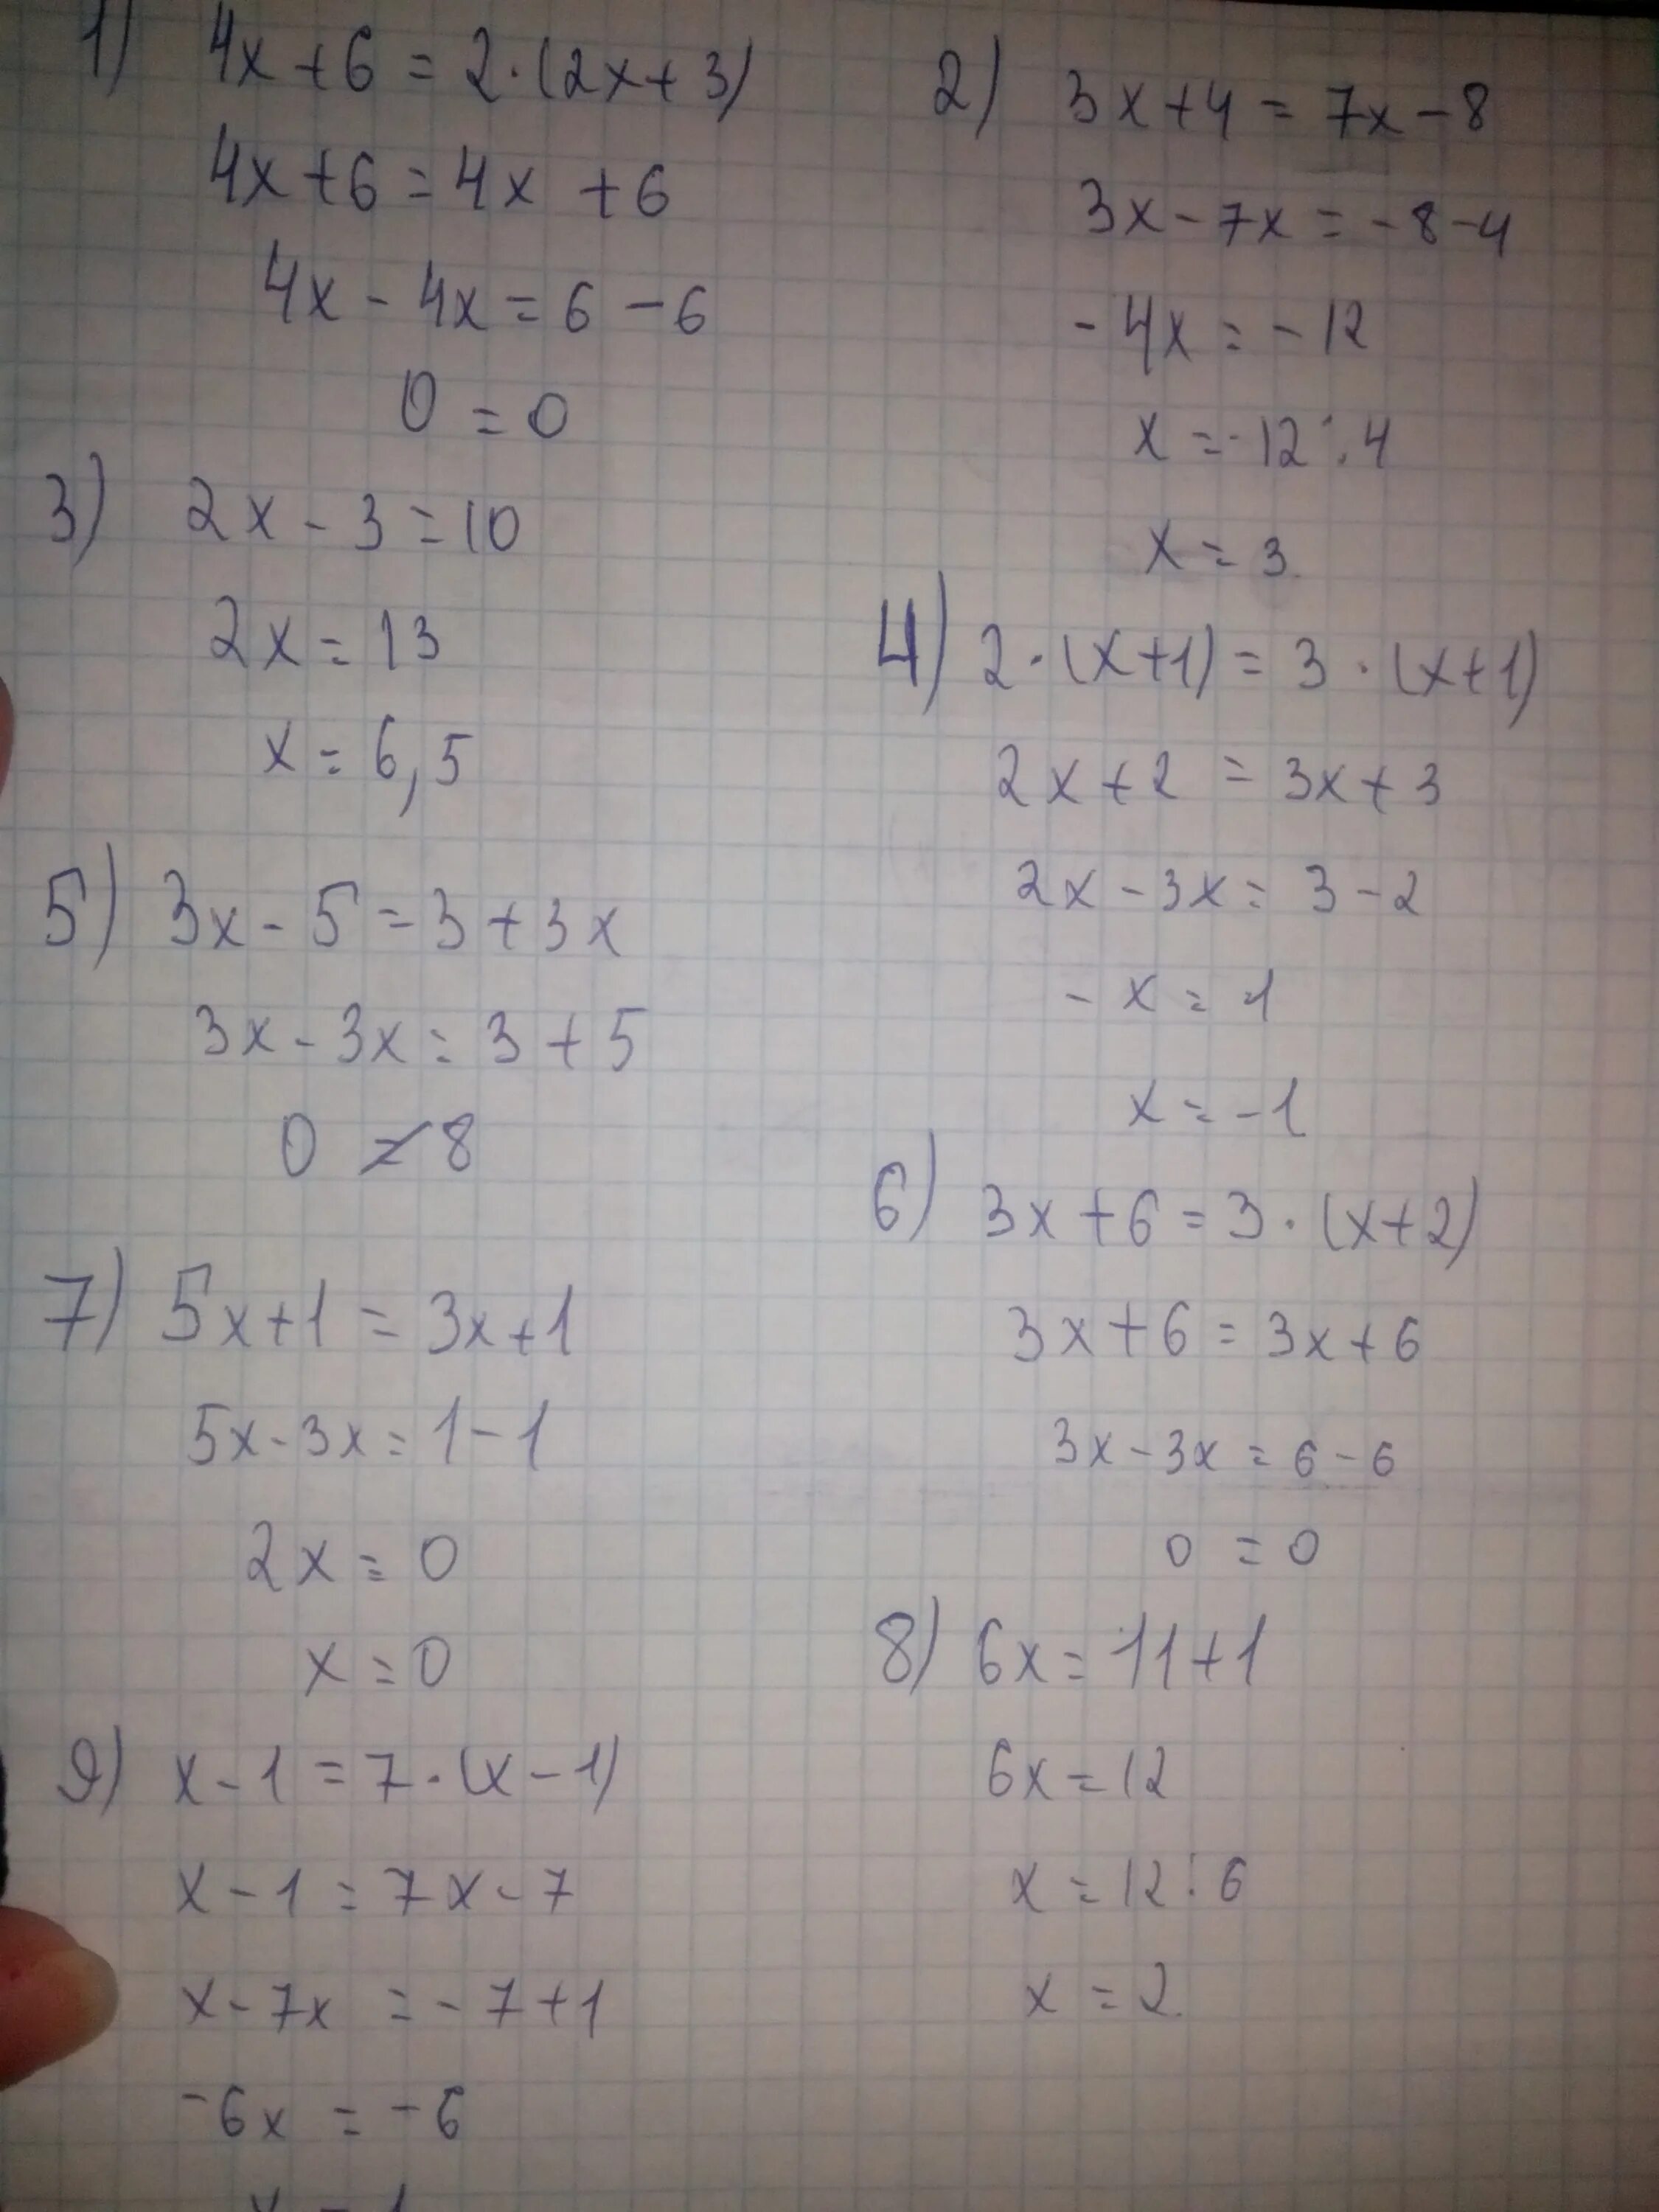 1) 4x + 6 = 2 · (2x + 3)
4x + 6 = 4x + 6
4x - 4x = 6 - 6
0 = 0
2) 3x + 4 = 7x - 8
3x - 7x = - 8 - 4
- 4x = - 12
x = - 12 : 4
x = 3
3) 2x - 3 = 10
2x = 13
x = 6,5
4) 2 · (x + 1) = 3 · (x + 1)
2x + 2 = 3x + 3
2x - 3x = 3 - 2
- x = 1
x = - 1
5) 3x - 5 = 3 + 3x
3x - 3x = 3 + 5
0 ≠ 8
6) 3x + 6 = 3 · (x + 2)
3x + 6 = 3x + 6
3x - 3x = 6 - 6
0 = 0
7) 5x + 1 = 3x + 1
5x - 3x = 1 - 1
2x = 0
x = 0
8) 6x = 11 + 1
6x = 12
x = 12 : 6
x = 2
9) x - 1 = 7 · (x - 1)
x - 1 = 7x - 7
x - 7x = - 7 + 1
- 6x = - 6
x = 1